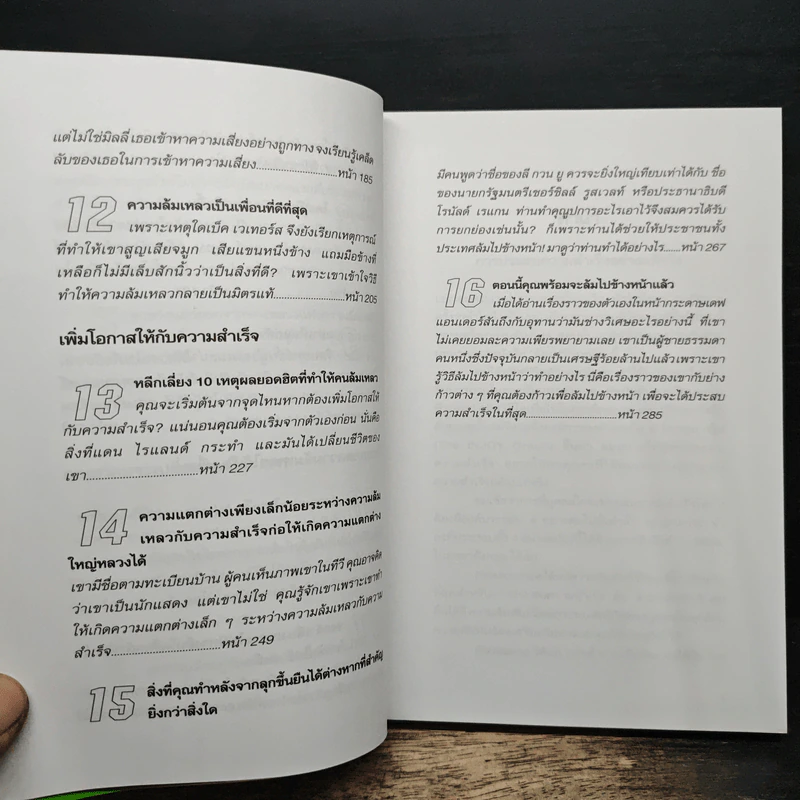 แต่ไม่ใช่มิลลี่ เธอเข้าหาความเสี่ยงอย่างถูกทาง จงเรียนรู้เคล็ด
ลับของเธอในการเข้าหาความเสี่ยง................................หน้า 185
12 ความล้มเหลวเป็นเพื่อนที่ดีที่สุด
เพราะเหตุใดเบ็ค เวเทอร์ส จึงยังเรียกเหตุการณ์
ที่ทำให้เขาสูญเสียจมูก เสียแขนหนึ่งข้าง แถมมือข้างที่
เหลือก็ไม่มีเล็บสักนิ้วว่าเป็นสิ่งที่ดี? เพราะเขาเข้าใจวิธี
ทำให้ความล้มเหลวกลายเป็นมิตรแท้.............................หน้า 205
เพิ่มโอกาสให้กับความสำเร็จ
13 หลีกเลี่ยง 10 เหตุผลยอดฮิตที่ทำให้คนล้มเหลว
คุณจะเริ่มต้นจากจุดไหนหากต้องเพิ่มโอกาสให้
กับความสำเร็จ? แน่นอนคุณต้องเริ่มจากตัวเองก่อน นั่นคือ
สิ่งที่แดน ไรแลนด์ กระทำ และมันได้เปลี่ยนชีวิตของ
เขา....................................หน้า 227
14 ความแตกต่างเพียงเล็กน้อยระหว่างความล้ม
เหลวกับความสำเร็จก่อให้เกิดความแตกต่าง
ใหญ่หลวงได้
เขามีชื่อตามทะเบียนบ้าน ผู้คนเห็นภาพเขาในทีวี คุณอาจคิด
ว่าเขาเป็นนักแสดง แต่เขาไม่ใช่ คุณรู้จักเขาเพราะเขาทำ
ให้เกิดความแตกต่างเล็ก ๆ ระหว่างความล้มเหลวกับความ
สำเร็จ...................................หน้า 249
15 สิ่งที่คุณทำหลังจากลุกขึ้นยืนได้ต่างหากที่สำคัญ
ยิ่งกว่าสิ่งใด
มีคนพูดว่าชื่อของลี กวน ยู ควรจะยิ่งใหญ่เทียบเท่าได้กับ ชื่อ
ของนายกรัฐมนตรีเชอร์ชิลล์ รูสเวลท์ หรือประธานาธิบดี
โรนัลด์ เรแกน ท่านทำคุณูปการอะไรเอาไว้จึงสมควรได้รับ
การยกย่องเช่นนั้น? ก็เพราะท่านได้ช่วยให้ประชาชนทั้ง
ประเทศล้มไปข้างหน้า! มาดูว่าท่านทำได้อย่างไร......หน้า 267
16 ตอนนี้คุณพร้อมจะล้มไปข้างหน้าแล้ว
เมื่อได้อ่านเรื่องราวของตัวเองในหน้ากระดาษเดฟ
แอนเดอร์สันถึงกับอุทานว่ามันช่างวิเศษอะไรอย่างนี้ ที่เขา
ไม่เคยยอมละความเพียรพยายามเลย เขาเป็นผู้ชายธรรมดา
คนหนึ่งซึ่งปัจจุบันกลายเป็นเศรษฐีร้อยล้านไปแล้ว เพราะเขา
รู้วิธีล้มไปข้างหน้าว่าทำอย่างไร นี่คือเรื่องราวของเขากับย่าง
ก้าวต่าง ๆ ที่คุณต้องก้าวเพื่อล้มไปข้างหน้า เพื่อจะได้ประสบ
ความสำเร็จในที่สุด..............................หน้า 285